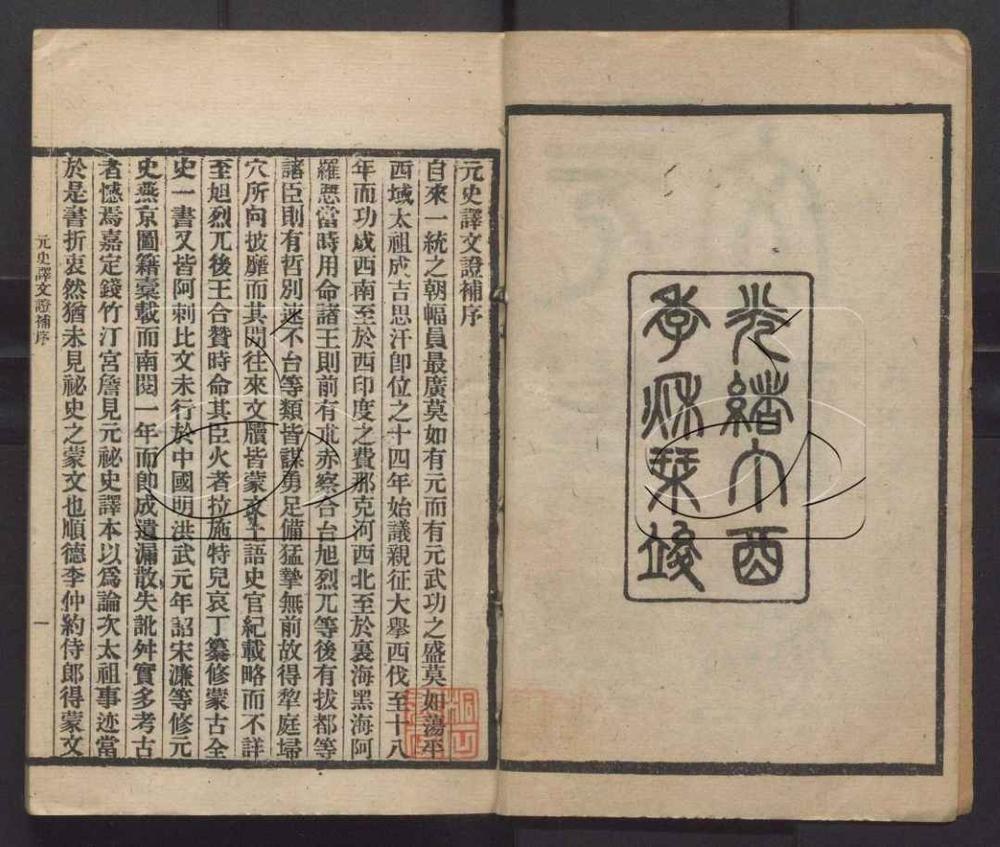 光緒丁酉
孝秌栞竣
元史譯文證補序
自來一統之朝幅員最廣莫如有元而有元武功之盛莫如蕩平
西域太祖成吉思汗卽位之十四年始議親征大舉西伐至十八
年而功成西南至於西印度之費那克河西北至於裏海黑海阿
羅思當時用命諸王則前有朮赤察合台旭烈兀等後有拔都等
諸臣則有哲別速不台等類皆謀勇足備猛摯無前故得犁庭埽
穴所向披靡而其閒往來文牘皆蒙文土語史官紀載略而不詳
至旭烈兀後王合贊時命其臣火者拉施特兒哀丁纂修蒙古全
史一書又皆阿剌比文未行於中國明洪武元年詔宋濂等修元
史燕京圖籍槖載而南閱一年而卽成遺漏散失訛舛實多考古
者憾焉嘉定錢竹汀宮詹見元祕史譯本以爲論次太祖事迹當
於是書折衷然猶未見祕史之蒙文也順德李仲約侍郎得蒙文
元史譯文證補序
一